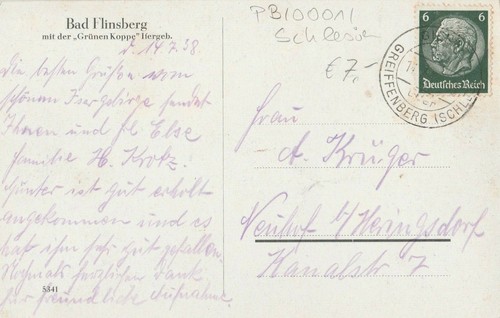 Bad Flinsberg
mit der „Grünen Koppe" Isergeb.
d. 14.7.38.
Die besten Grüße vom
schönen Isergebirge sendet
Ihnen und frl. Else
Familie H. Krotz.
Günter ist gut erholt
angekommen und es
hat ihm sehr gut gefallen.
Nochmals herzlichen Dank
für freundliche Aufnahme.
5341
PB10001/
Schlesien
€ 7,-
6 6
Deutsches Reich
GREIFFENBERG (SCHLES
Frau
A. Krüger
Neuhof b/Heringsdorf
Kanalstr 7